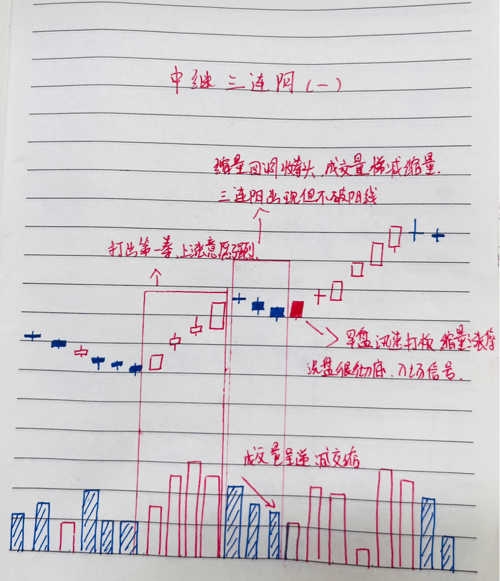 中继三连阴(一)
缩量回调收拳头,成交量梯减缩量.
三连阴出现但不破阳线
打出第一拳,上涨意愿强烈.
早盘迅速打板 缩量涨停
洗盘很彻底,入场信号.
成交量呈递减交缩